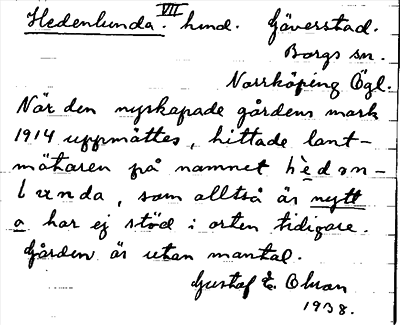 VII
Hedenlunda. hmd. Gäverstad.
Borgs sn.
Norrköping Ögl.
När den nyskapade gårdens mark
1914 uppmättes, hittade lant-
mätaren på namnet hèdən-
lunda, som alltså är nytt
o har ej stöd i orten tidigare.
Gården är utan mantal.
Gustaf E. Ohson
1938.